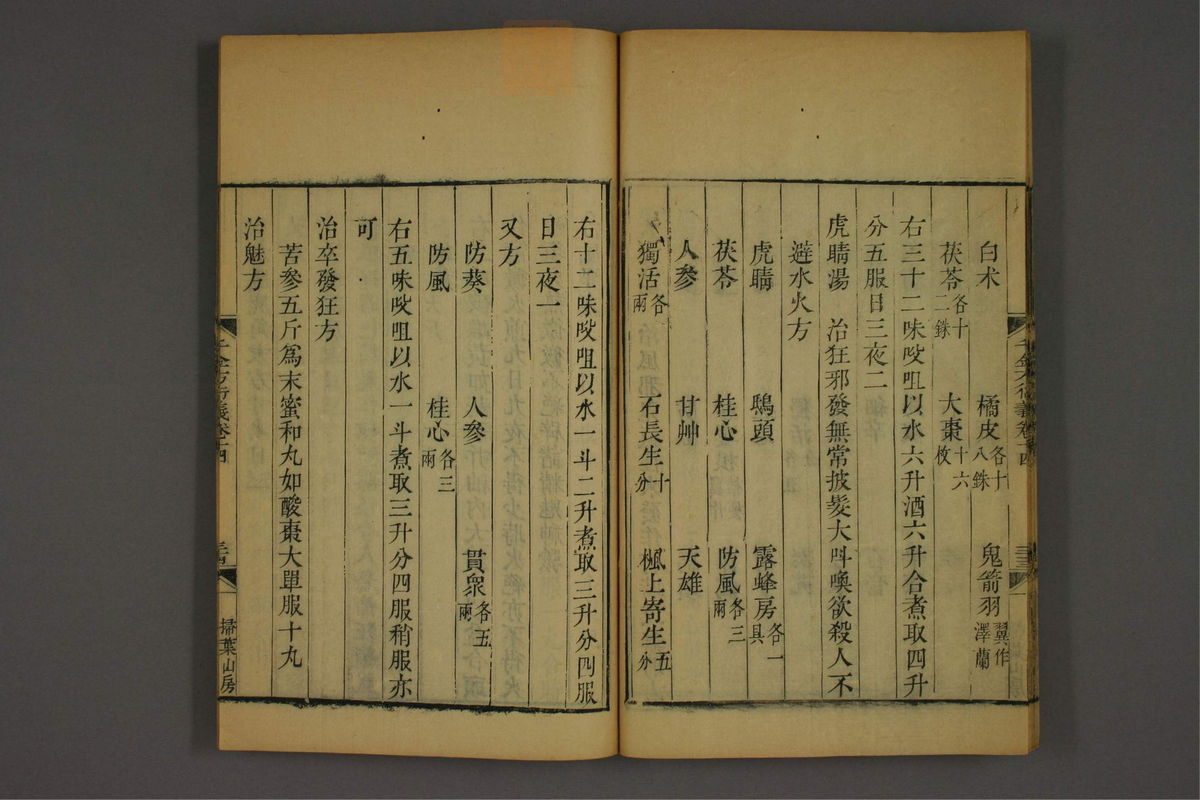 白术　橘皮各十八銖　鬼箭羽翼作澤蘭
茯苓各十二銖　大棗十六枚
右三十二味㕮咀以水六升酒六升合煮取四升
分五服日三夜二
虎睛湯　治狂邪發無常披髮大呌喚欲殺人不
避水火方
虎睛　鴟頭　露蜂房各一具
茯苓　桂心　防風各三兩
人參　甘艸　天雄
獨活各兩　石長生十分　楓上寄生五分
右十二味㕮咀以水一斗二升煮取三升分四服
日三夜一
又方
防葵　人參　貫衆各五兩
防風　桂心各三兩
右五味㕮咀以水一斗煮取三升分四服稍服亦
可
治卒發狂方
苦參五斤爲末蜜和丸如酸棗大單服十丸
治魅方
千金方衍義卷十四
掃葉山房